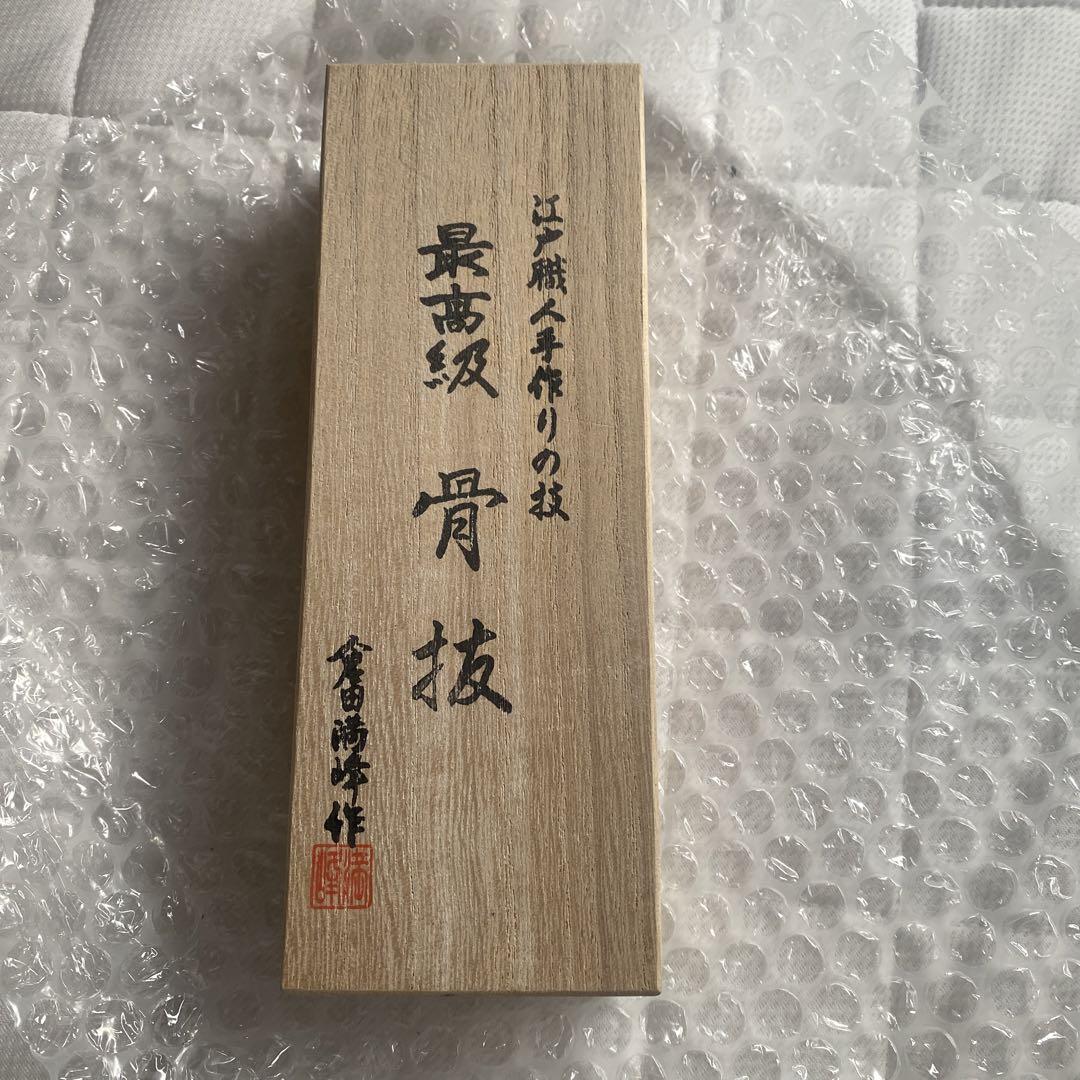 江戸職人手作りの技
最高級 骨抜
倉田満峰作
満峰